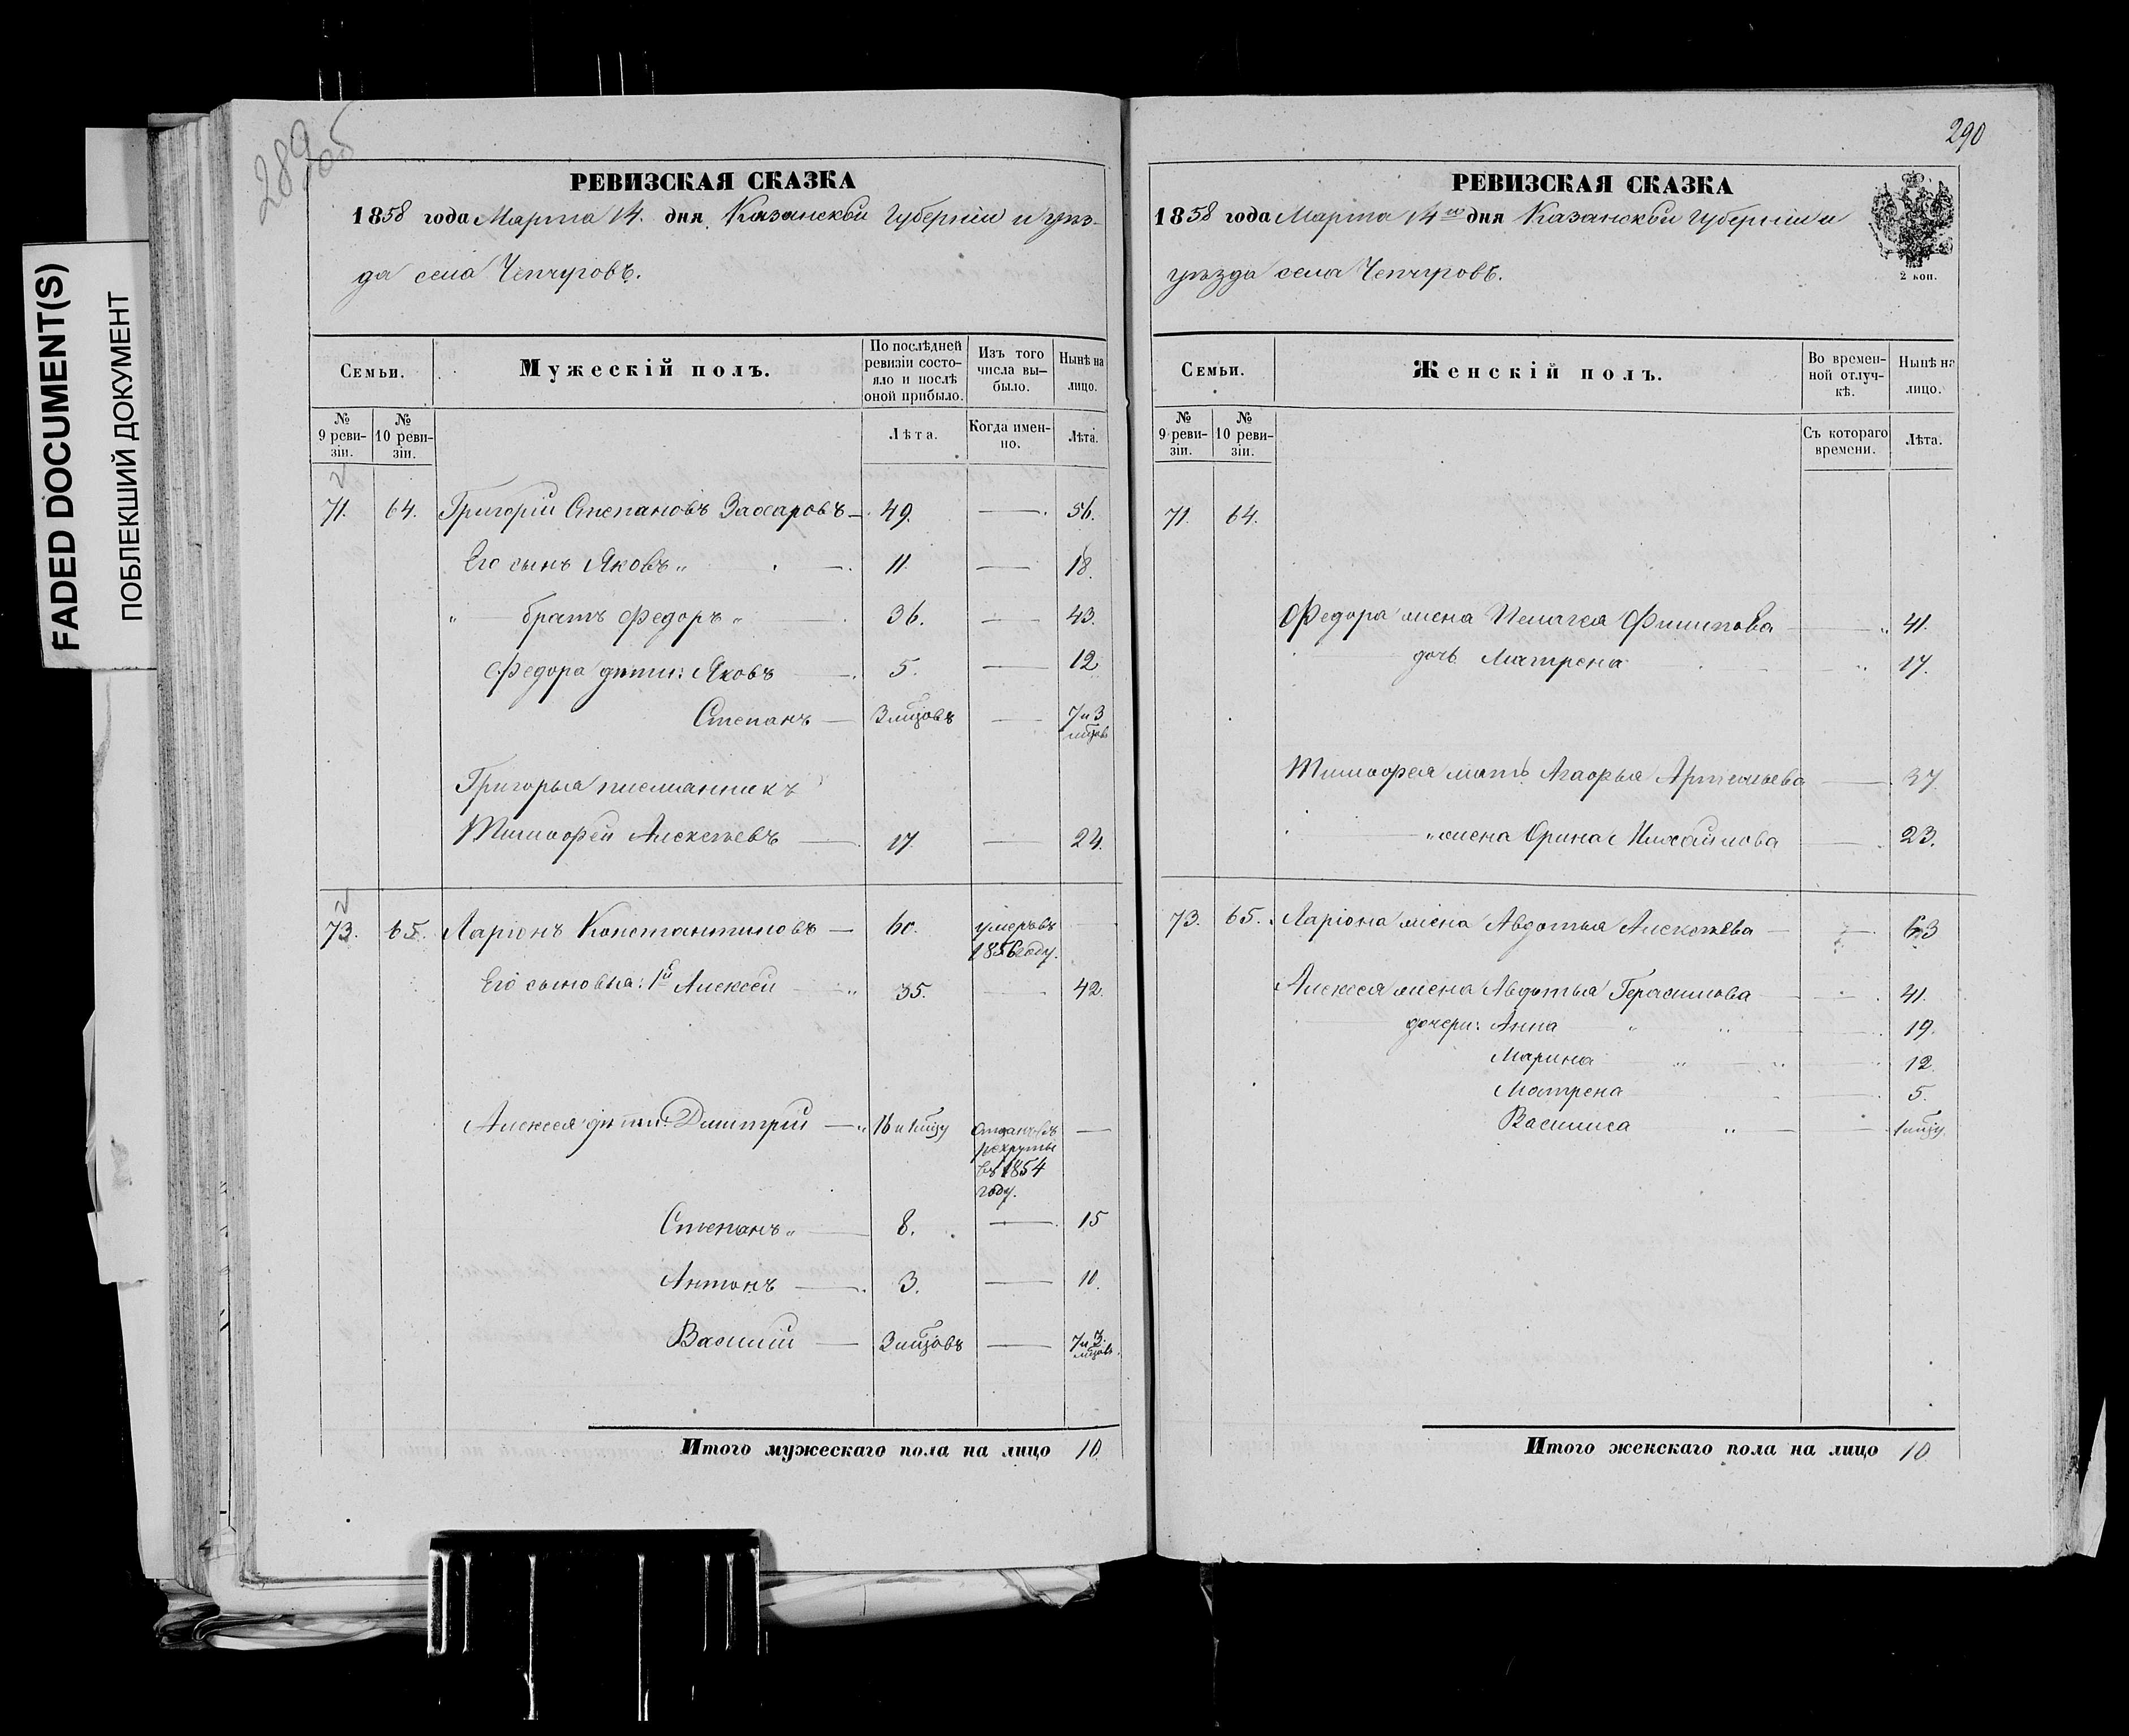 FADED DOCUMENT(S)
ПОБЛЕКШИЙ ДОКУМЕНТ
289
РЕВИЗСКАЯ СКАЗКА
1858 года Марта 14. дня Казанской Губернiи и уѣз-
да села Чепчуговъ.
Семьи.
Мужескій полъ.
По послѣдней ревизіи состо-яло и послѣ оной прибыло.
Изъ того числа вы-было.
Нынѣ на лицо.
№ 9 реви-зіи.
№ 10 реви-зіи.
Лѣта.
Когда имен-но.
Лѣта.
71. 64. Григорій Степановъ Захаровъ — 49. — 56.
Его сынъ Яковъ „ — 11. — 18.
„ — братъ Федоръ „ — 36. — 43.
Федора дѣти: Яковъ — 5. — 12
Степанъ — 3 мцовъ — 7 и 3 мцов
Григорья племянникъ
Тимофей Алексѣевъ — 17. — 24.
73. 65. Ларіонъ Константиновъ — 60. умеръ въ 1856 году. —
Его сыновья: 1й Алексѣй „ 35. — 42.
Алексѣя дѣти: Дмитрій — „ 16 и 1 мцу Отданъ въ рекруты въ 1854 году. —
Степанъ „ — 8. — 15
Антонъ — 3. — 10.
Василій — 3 мцовъ — 7 и 3. мцовъ.
Итого мужескаго пола на лицо 10.
290
РЕВИЗСКАЯ СКАЗКА
1858 года Марта 14го дня Казанской Губернiи и
уѣзда села Чепчуговъ.
2 коп.
Семьи.
Женскій полъ.
Во времен-ной отлуч-кѣ.
Нынѣ на лицо.
№ 9 реви-зіи.
№ 10 реви-зіи.
Съ котораго времени.
Лѣта.
71. 64.
Федора жена Пелагея Филипова — „ 41.
дочь Матрена — „ 17.
Тимофея мать Агафья Артемьева — 37
„ жена Орина Михайлова — 23.
73. 65. Ларіона жена Авдотья Алексѣева — 63
Алексѣя жена Авдотья Герасимова — 41.
дочери: Анна „ „ — 19.
Марина „ — „ — 12.
Матрена — 5.
Василиса „ — 1 мцу.
Итого женскаго пола на лицо 10